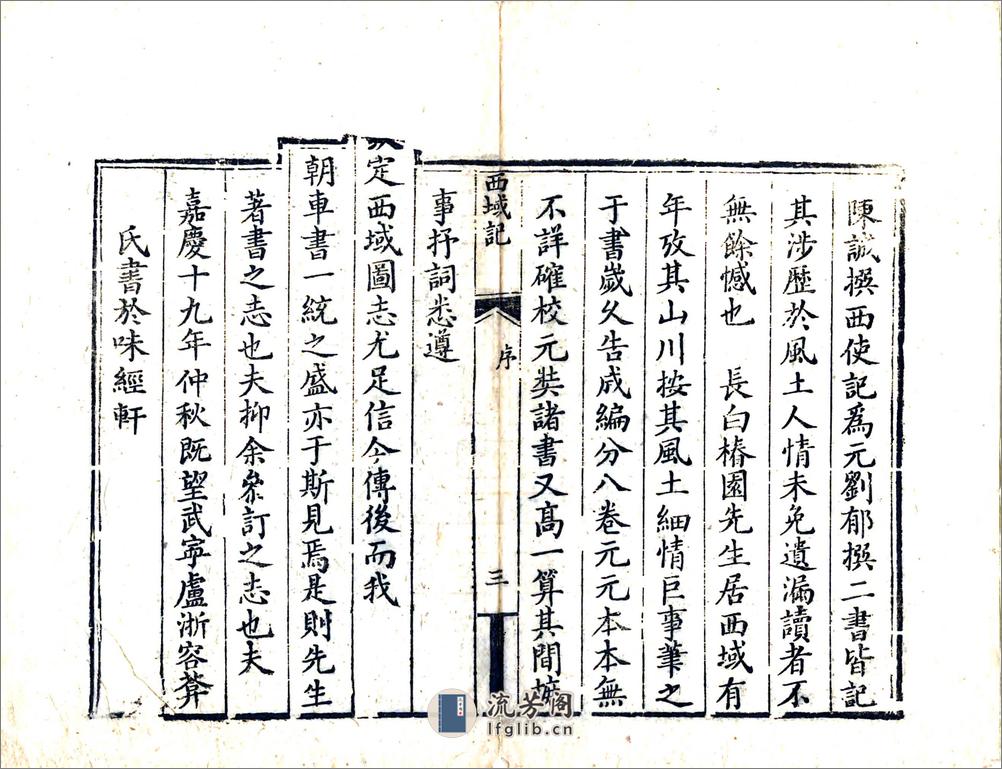 陳誠撰西使記爲元劉郁撰二書皆記
其涉歷於風土人情未免遺漏讀者不
無餘憾也　長白椿園先生居西域有
年攷其山川按其風土細情巨事筆之
于書歲久告成編分八卷元元本本無
不詳確校元奘諸書又高一算其間摭
西域記
序
三
事抒詞悉遵
欽定西域圖志尤足信今傳後而我
朝車書一統之盛亦于斯見焉是則先生
著書之志也夫抑余叅訂之志也夫
嘉慶十九年仲秋既望武寧盧浙容葊
氏書於味經軒
流芳阁
lfglib.cn